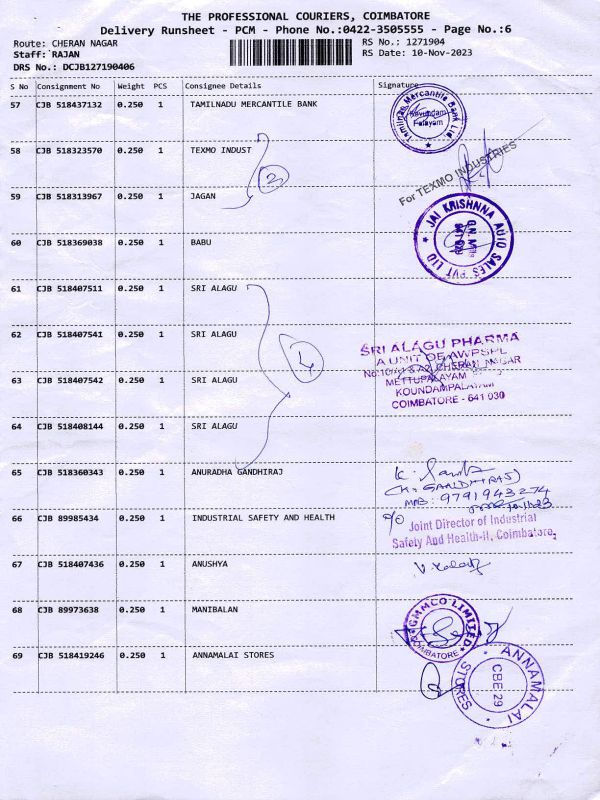 THE PROFESSIONAL COURIERS, COIMBATORE
Delivery Runsheet - PCM - Phone No.:0422-3505555 - Page No.:6
Route: CHERAN NAGAR RS No.: 1271904
Staff: RAJAN RS Date: 10-Nov-2023
DRS No.: DCJB127190406
S No Consignment No Weight PCS Consignee Details Signature
57 CJB 518437132 0.250 1 TAMILNADU MERCANTILE BANK
Tamilnad Mercantile Bank Ltd
Kavundam
Palayam
58 CJB 518323570 0.250 1 TEXMO INDUST
2
For TEXMO INDUSTRIES
59 CJB 518313967 0.250 1 JAGAN
JAI KRISHNNA AUTO SALES PVT LTD
60 CJB 518369038 0.250 1 BABU
61 CJB 518407511 0.250 1 SRI ALAGU
62 CJB 518407541 0.250 1 SRI ALAGU
4
SRI ALAGU PHARMA
A UNIT OF AWPSPL
CHERAN NAGAR
METTUPALAYAM
KOUNDAMPALAYAM
COIMBATORE - 641 030
63 CJB 518407542 0.250 1 SRI ALAGU
64 CJB 518408144 0.250 1 SRI ALAGU
65 CJB 518360343 0.250 1 ANURADHA GANDHIRAJ
(K. GANDHIRAJ)
MOB: 9791943274
66 CJB 89985434 0.250 1 INDUSTRIAL SAFETY AND HEALTH
% Joint Director of Industrial
Safety And Health-II, Coimbatore.
67 CJB 518407436 0.250 1 ANUSHYA
68 CJB 89973638 0.250 1 MANIBALAN
GMMCO LIMITED
COIMBATORE
69 CJB 518419246 0.250 1 ANNAMALAI STORES
ANNAMALAI STORES
CBE 29